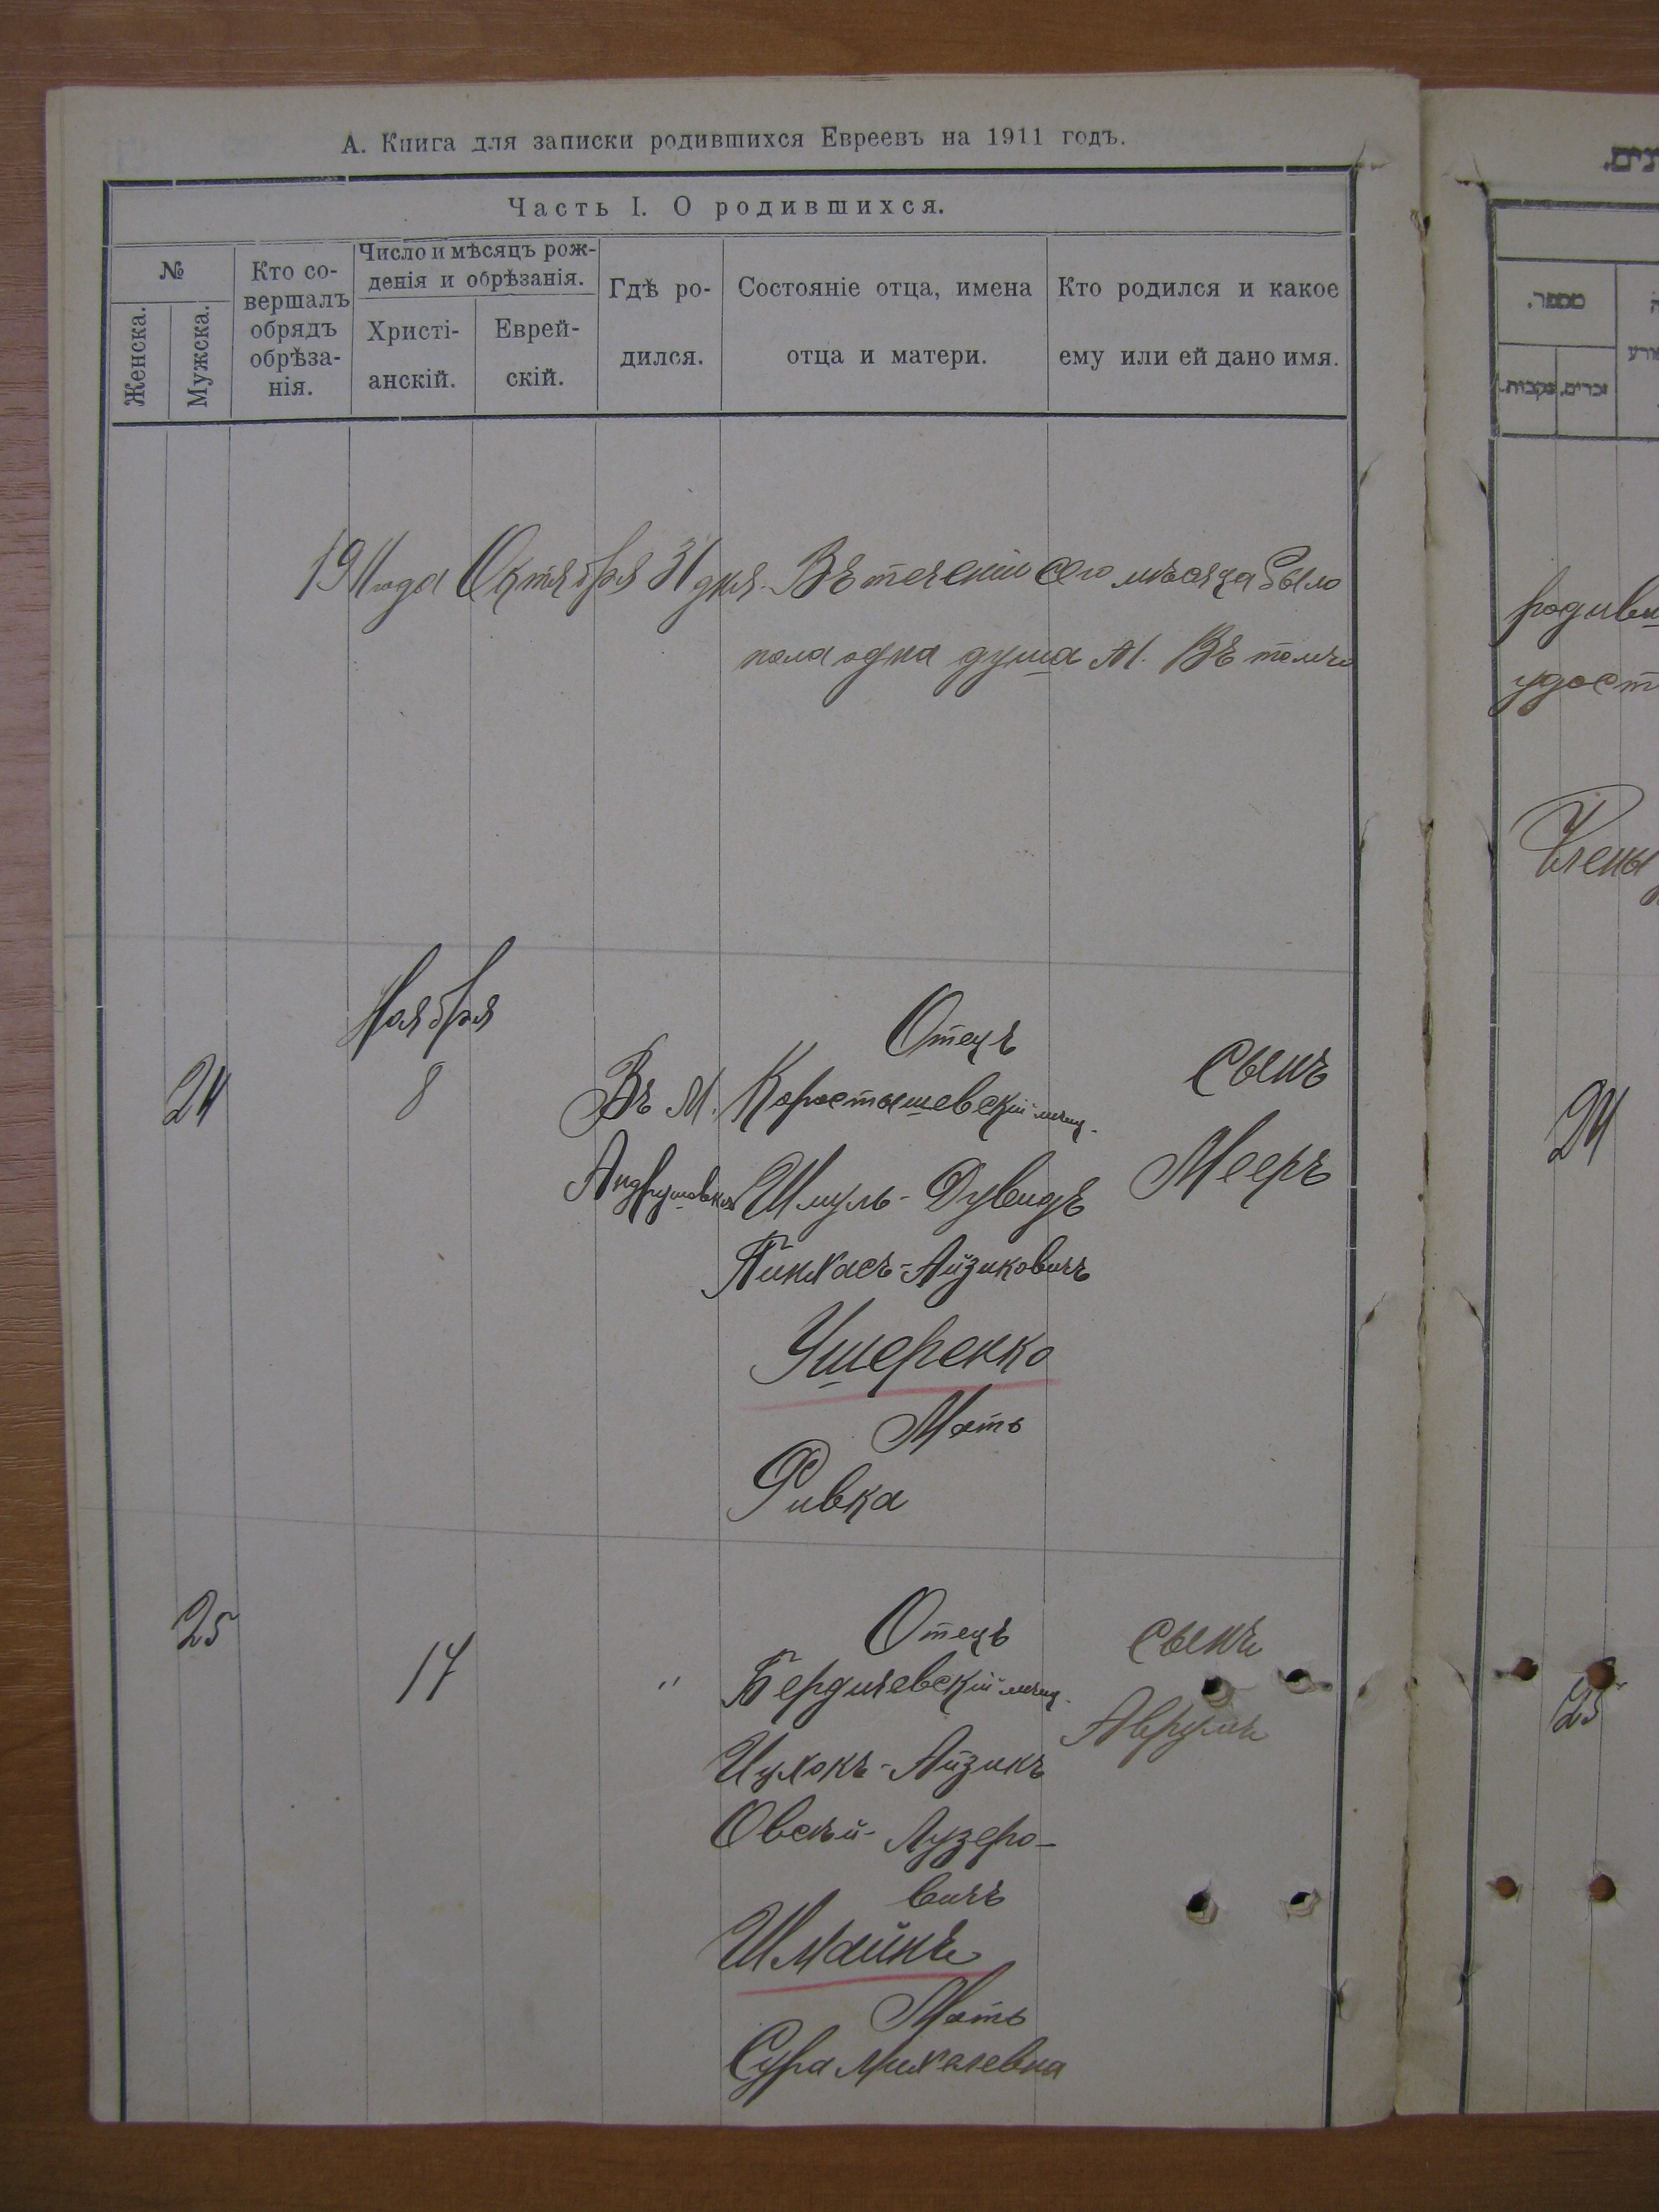 А. Книга для записки родившихся Евреевъ на 1911 годъ.
Часть I. О родившихся.
№
Женска.
Мужска.
Кто со-
вершалъ
обрядъ
обрѣза-
нія.
Число и мѣсяцъ рож-
денія и обрѣзанія.
Христі-
анскій.
Еврей-
скій.
Гдѣ ро-
дился.
Состояніе отца, имена
отца и матери.
Кто родился и какое
ему или ей дано имя.
1911 года Октября 31 дня. Въ теченіи сего мѣсяца было
пола одна душа М. Въ томъ
Ноября
24
8
Въ М.
Андрушовка
Отецъ
Коростышевскій мѣщ.
Шмуль-Дувидъ
Пинхасъ-Айзиковичъ
Ушеренко
Мать
Ривка
сынъ
Мееръ
25
17
"
Отецъ
Бердичевскій мѣщ.
Ицхокъ-Айзикъ
Овсѣй-Лузеро-
вичъ
Шмайнъ
Мать
Сура Михелевна
сынъ
Аврумъ
מספר.
זכרים.
נקבות.
родивш
удост
Члены
24
25